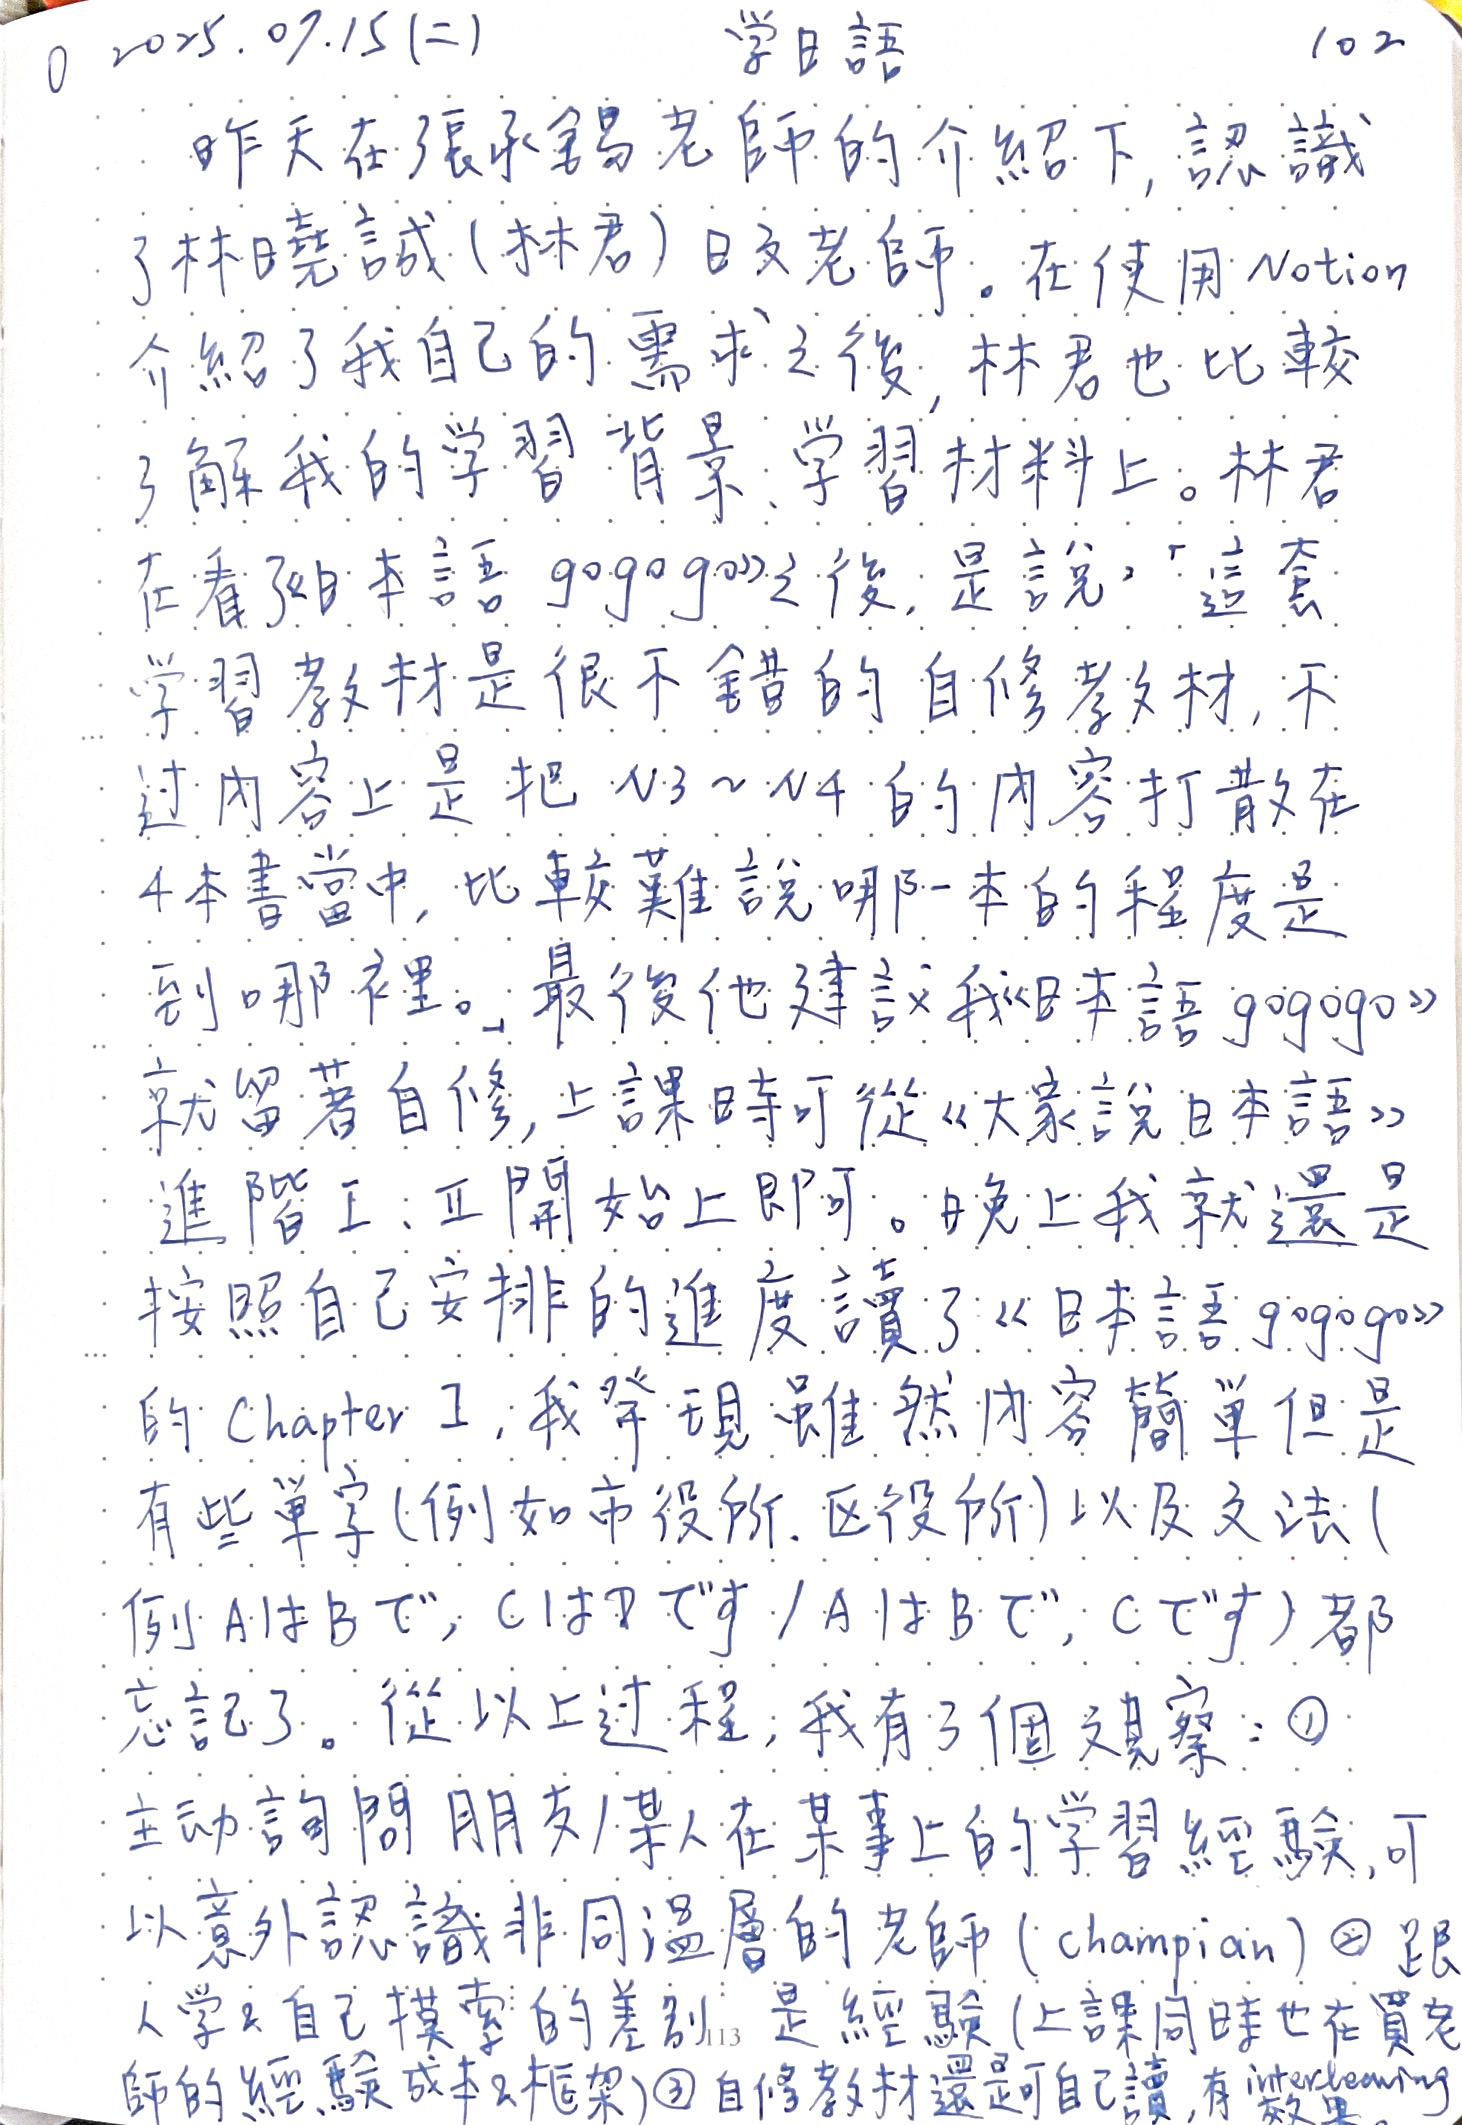 0 2025.07.15(二) 学日語 102
昨天在張承錫老師的介紹下,認識
了林曉誠(林君)日文老師。在使用Notion
介紹了我自己的需求之後,林君也比較
了解我的学習背景、学習材料上。林君
在看了《日本語gogogo》之後,是說,「這套
学習教材是很不錯的自修教材,不
过内容上是把N3~N4的内容打散在
4本書當中,比較難說哪一本的程度是
到哪裡。」最後他建議我《日本語gogogo》
就留著自修,上課時可從《大家說日本語》
進階I、II開始上即可。晚上我就還是
按照自己安排的進度讀了《日本語gogogo》
的Chapter I,我發現雖然内容簡單但是
有些單字(例如市役所.区役所)以及文法(
例AはBで,CはDです/AはBで,Cです)都
忘記了。從以上过程,我有3個观察:①
主动詢問朋友/某人在某事上的学習經驗,可
以意外認識非同溫層的老師(champian)②跟
人学&自己摸索的差别 是經驗(上課同時也在買老
113
師的經驗成本&框架)③自修教材還是可自己讀,有interleaving
效果